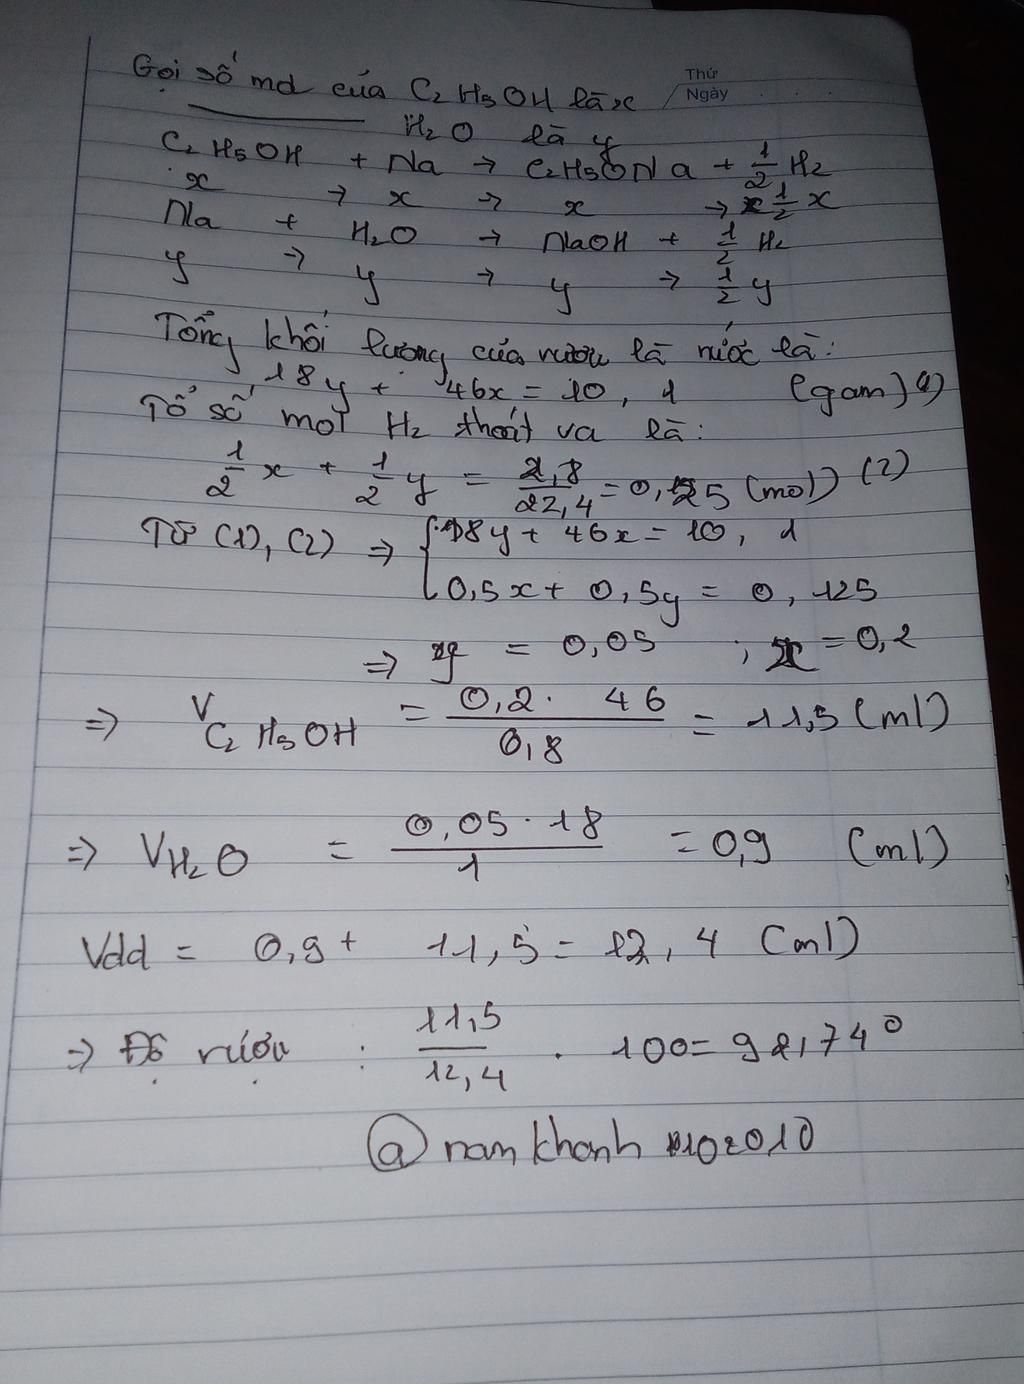 Gọi số mol của C2H5OH là x
Thứ
Ngày
H2O là y
C2H5OH + Na → C2H5ONa + 1/2 H2
x → x → x → 1/2 x
Na + H2O → NaOH + 1/2 H2
y → y → y → 1/2 y
Tổng khối lượng của rượu là nước là:
18y + 46x = 10,1 (gam) (1)
Tổ số mol H2 thoát va là:
1/2 x + 1/2 y = 2,8/22,4 = 0,125 (mol) (2)
Từ (1), (2) ⇒ { 18y + 46x = 10,1
0,5x + 0,5y = 0,125
⇒ y = 0,05 ; x = 0,2
⇒ V C2H5OH = 0,2 . 46 / 0,8 = 11,5 (ml)
⇒ VH2O = 0,05 . 18 / 1 = 0,9 (ml)
Vdd = 0,9 + 11,5 = 12,4 (ml)
⇒ Độ rượu : 11,5/12,4 . 100 = 92,74°
@namkhanh102010